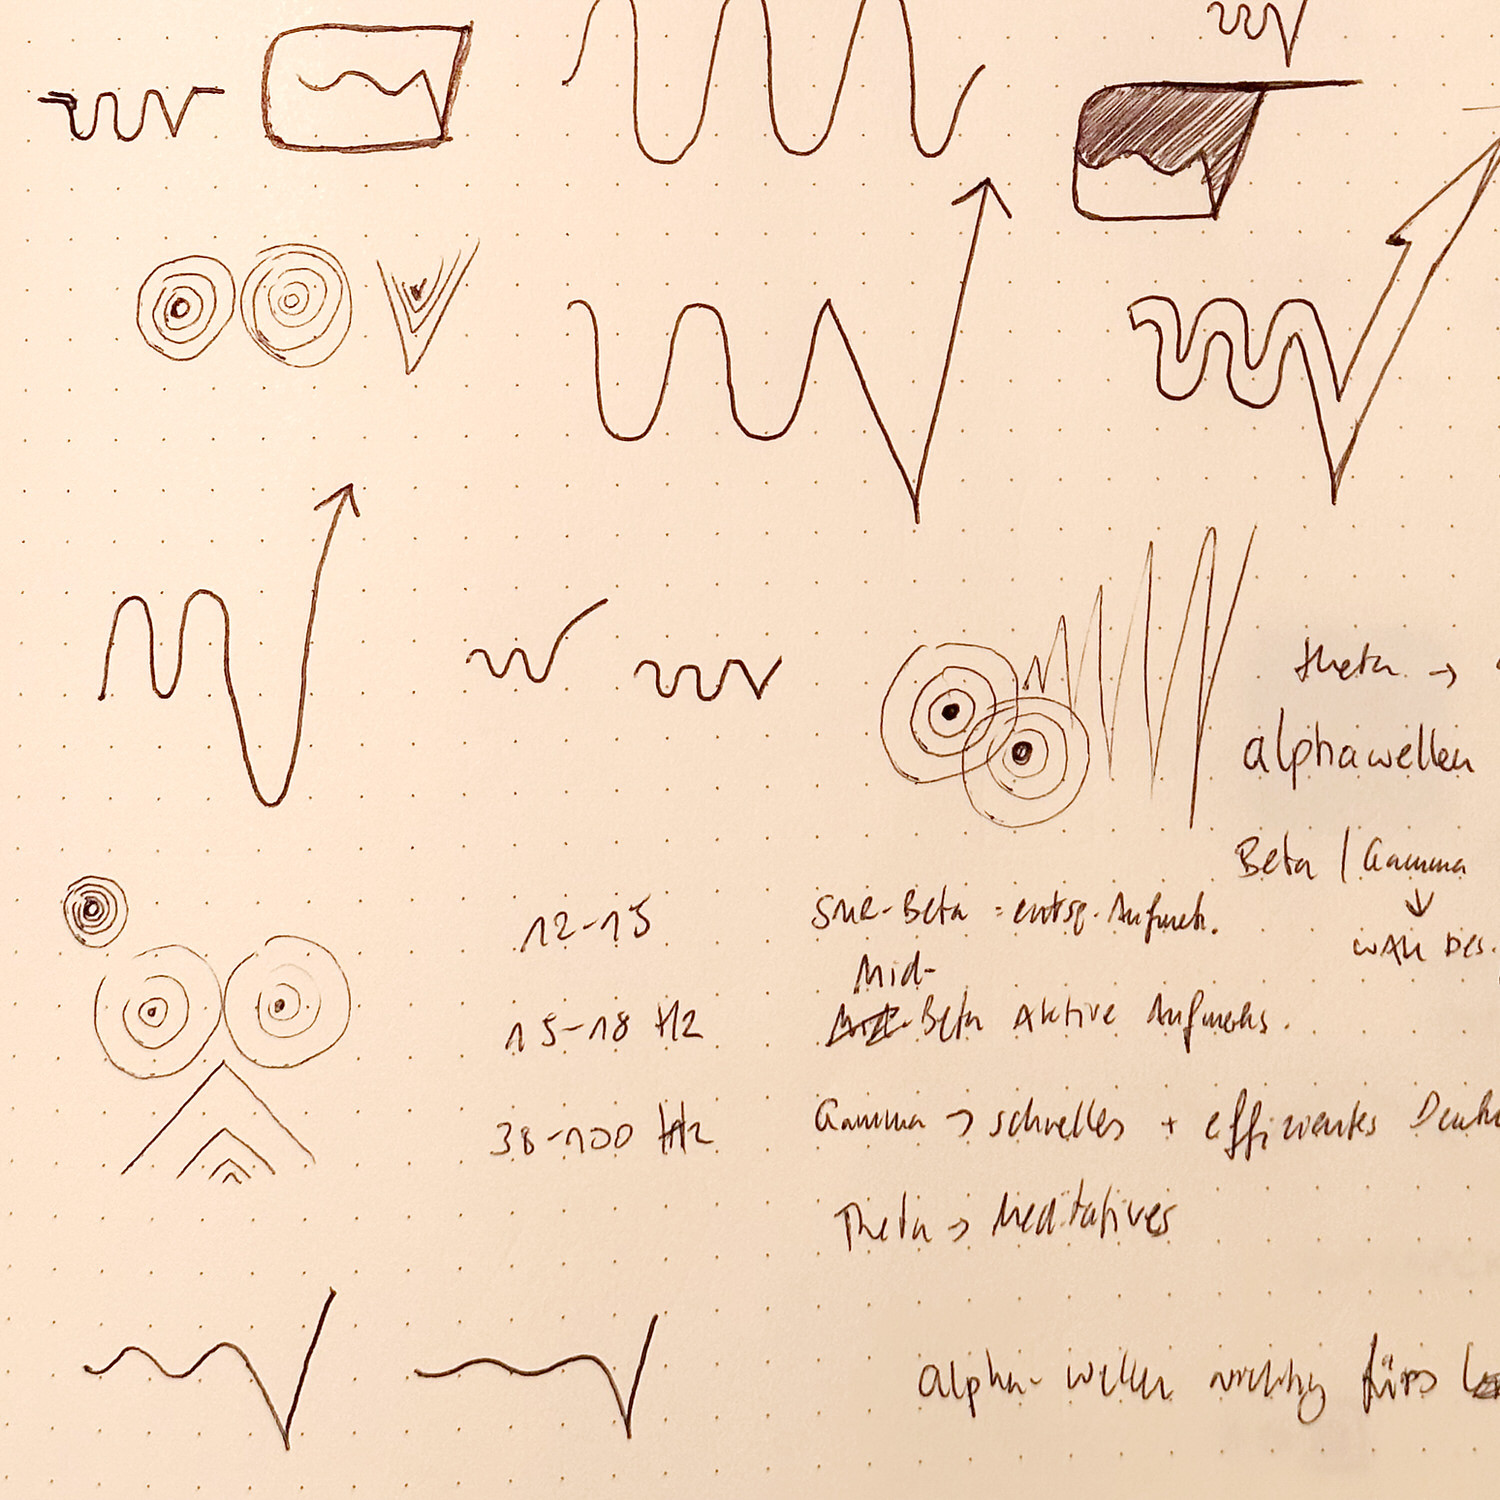 theta →
alphawellen
Beta / Gamma
↓
12-15 SMR-Beta = entsp. Aufmerk.
Mid-
15-18 Hz Beta Aktive Aufmerks.
38-100 Hz Gamma → schnelles + effizientes
Theta → Meditatives
alpha- wellen wichtig fürs